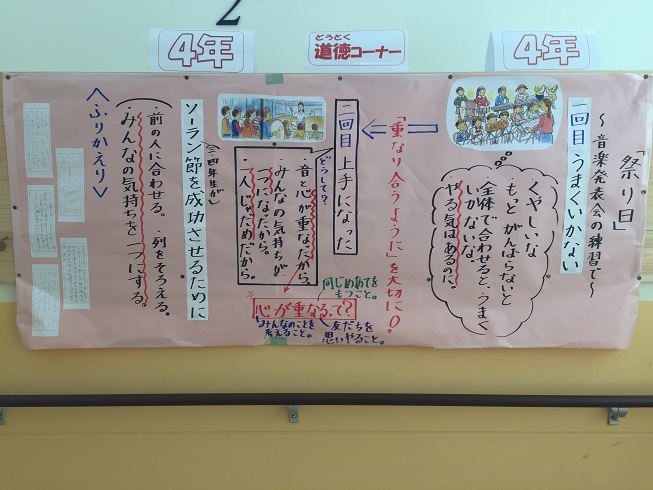 2
4年
どうとく
道徳コーナー
4年
「祭り日」
〜音楽発表会の練習で〜
一回目 うまくいかない
くやしいな
・もっと がんばらないと
・全体で合わせると、うまく
いかないな。
・やる気はあるのに。
「重なり合うように」を大切に!
二回目 上手になった
どうして?
・音と心が重なったから
・みんなの気持ちが
一つになったから。
・一人じゃだめだから。
同じめあてを
もつこと。
心が重なるって?
みんなのことを
考えること。
友だちを
思いやること。
(三・四年生が)
ソーラン節を成功させるために
・前の人に合わせる。・列をそろえる。
・みんなの気持ちを一つにする。
<ふりかえり>